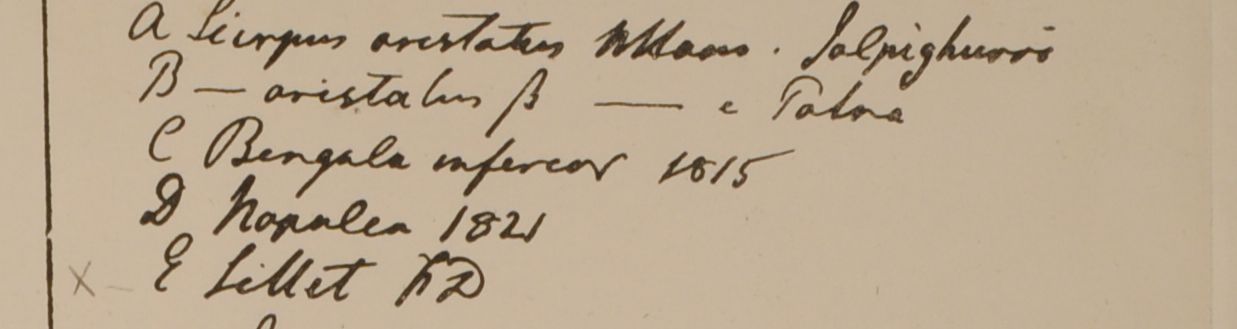 A Scirpus aristatus Willd. Jalpighurri
B — aristatus β — e Patna
C Bengala inferior 1815
D Napalea 1821
X E Sillet FD